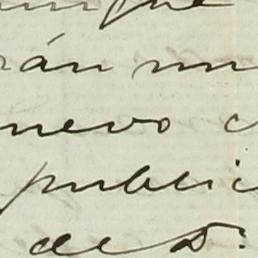 unque
rán un
nuevo c
public
de D.